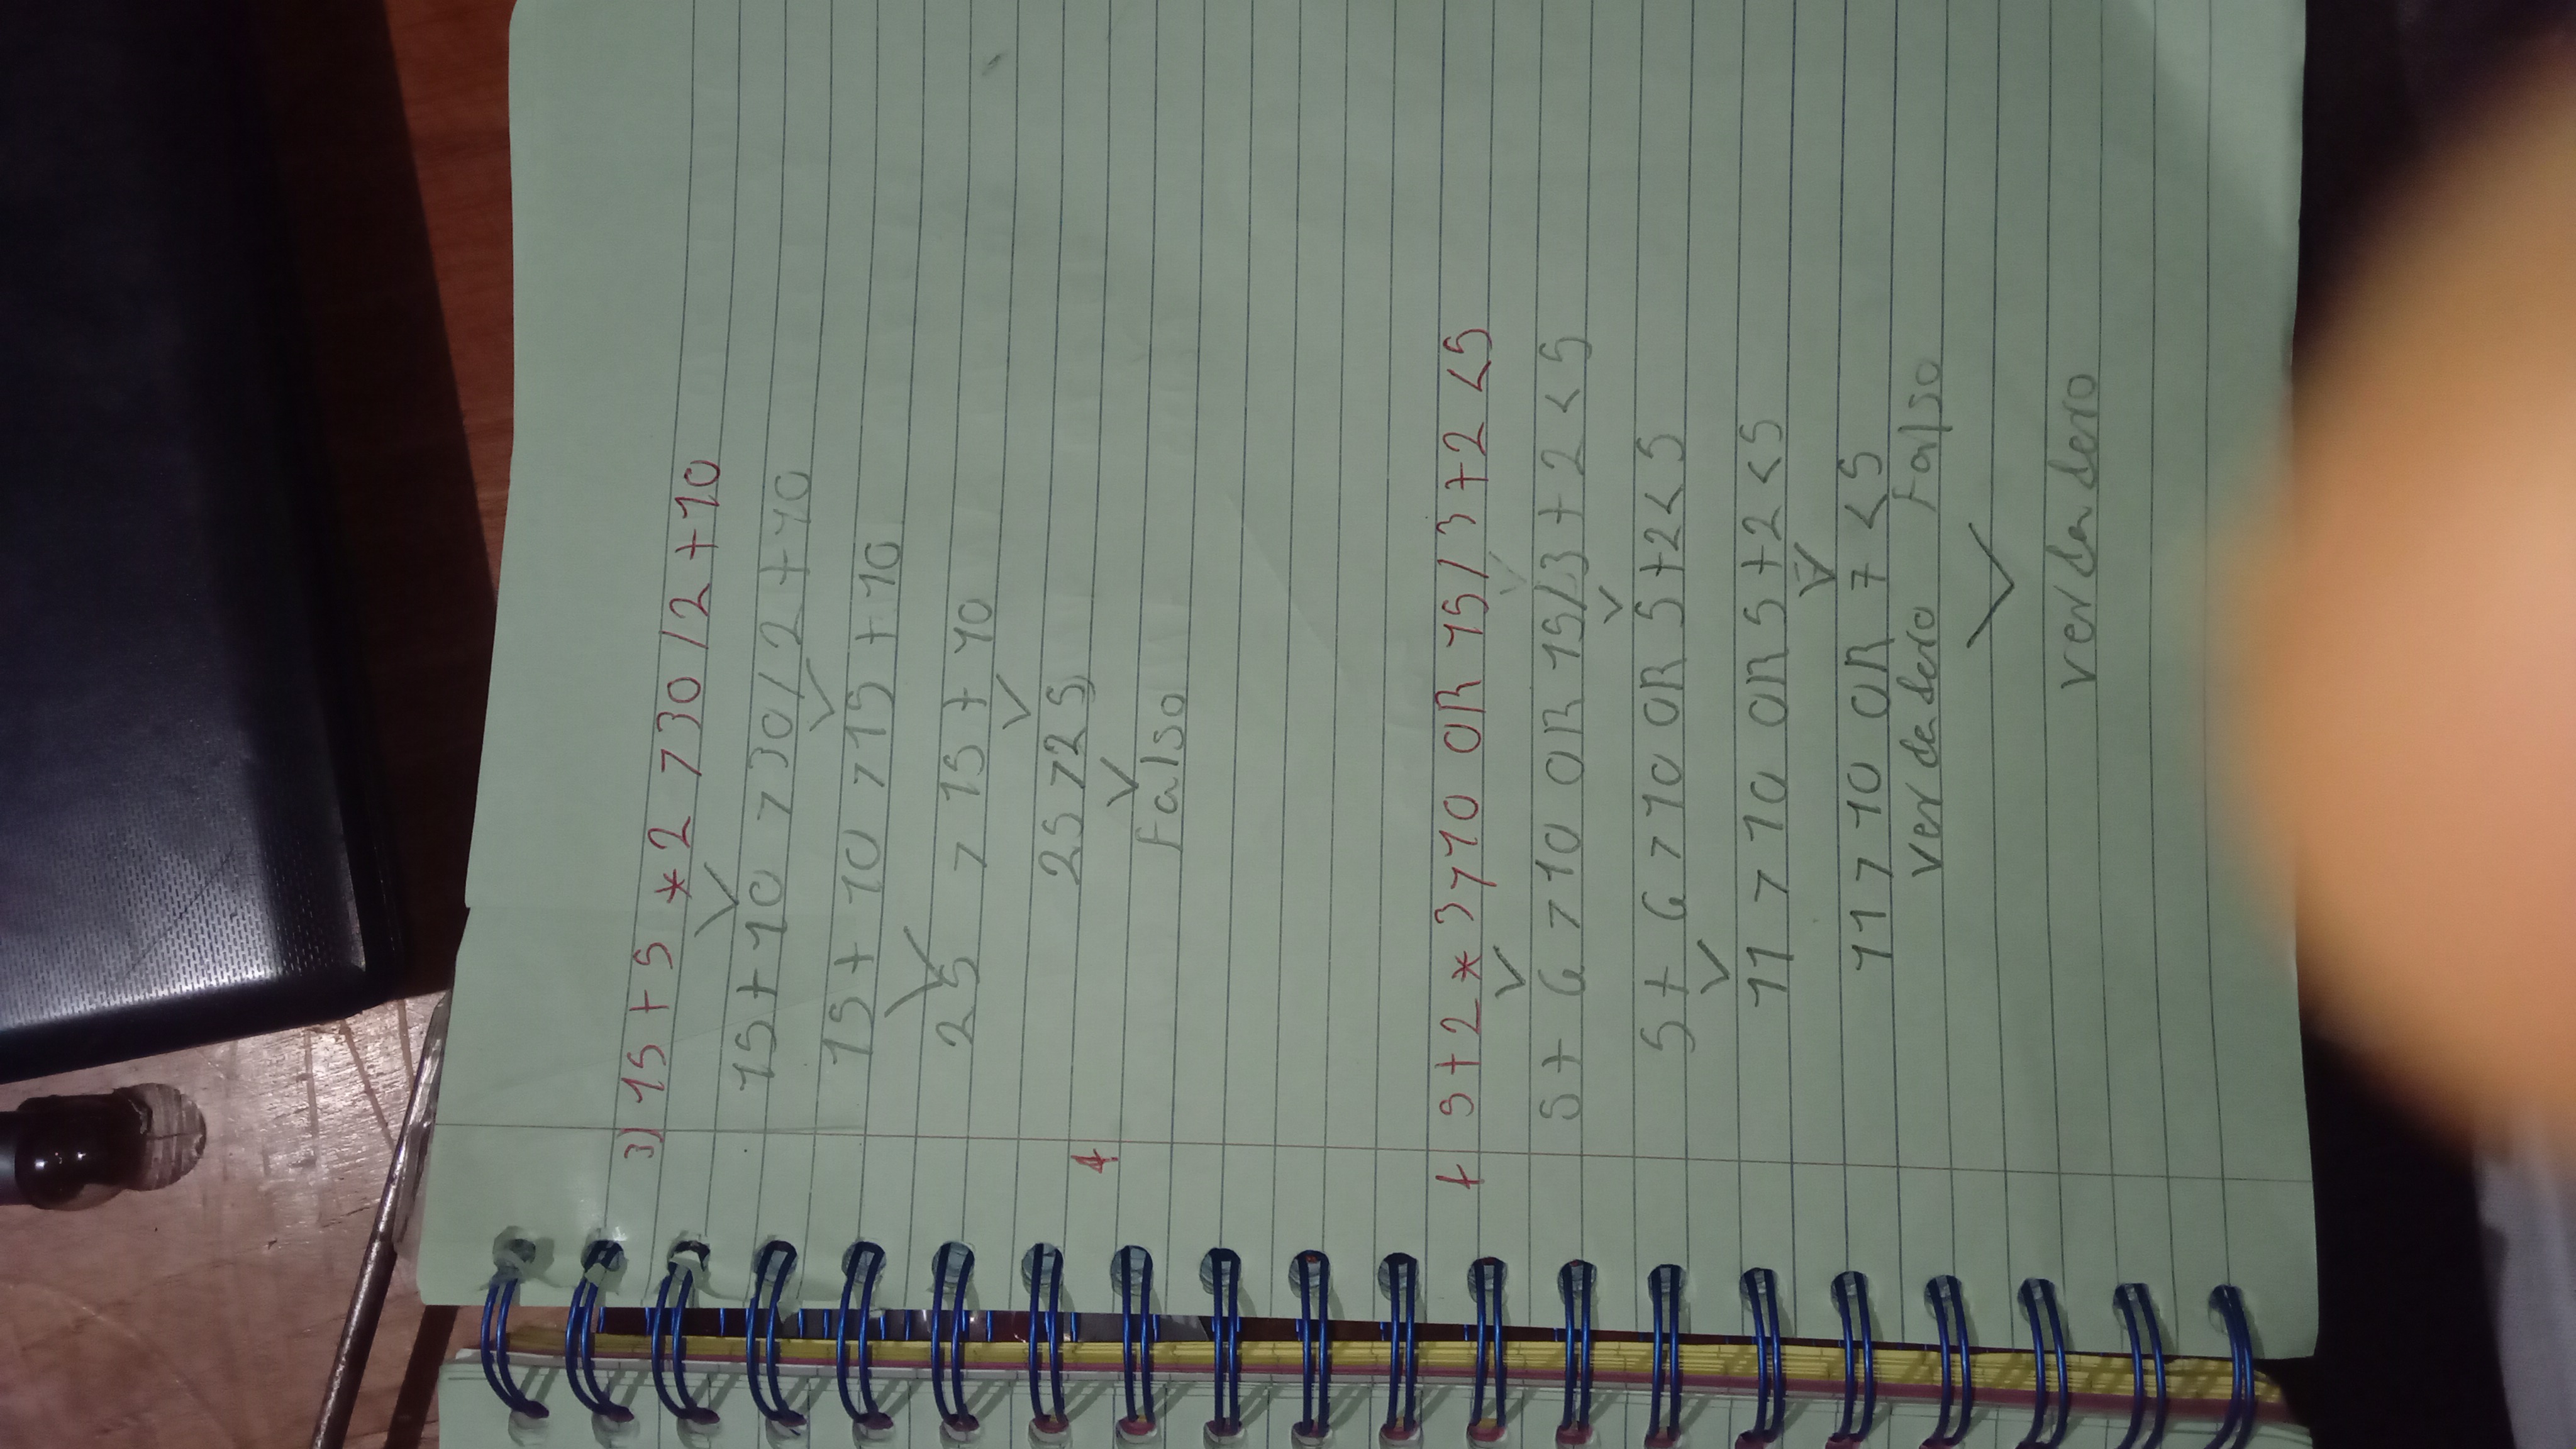 3) 15 + 5 * 2 > 30 / 2 + 10
15 + 10 > 30 / 2 + 10
15 + 10 > 15 + 10
25 > 15 + 10
25 > 25
Falso
4
4 5 + 2 * 3 > 10 OR 15 / 3 + 2 < 5
5 + 6 > 10 OR 15 / 3 + 2 < 5
5 + 6 > 10 OR 5 + 2 < 5
11 > 10 OR 5 + 2 < 5
11 > 10 OR 7 < 5
Verdadero Falso
verdadero